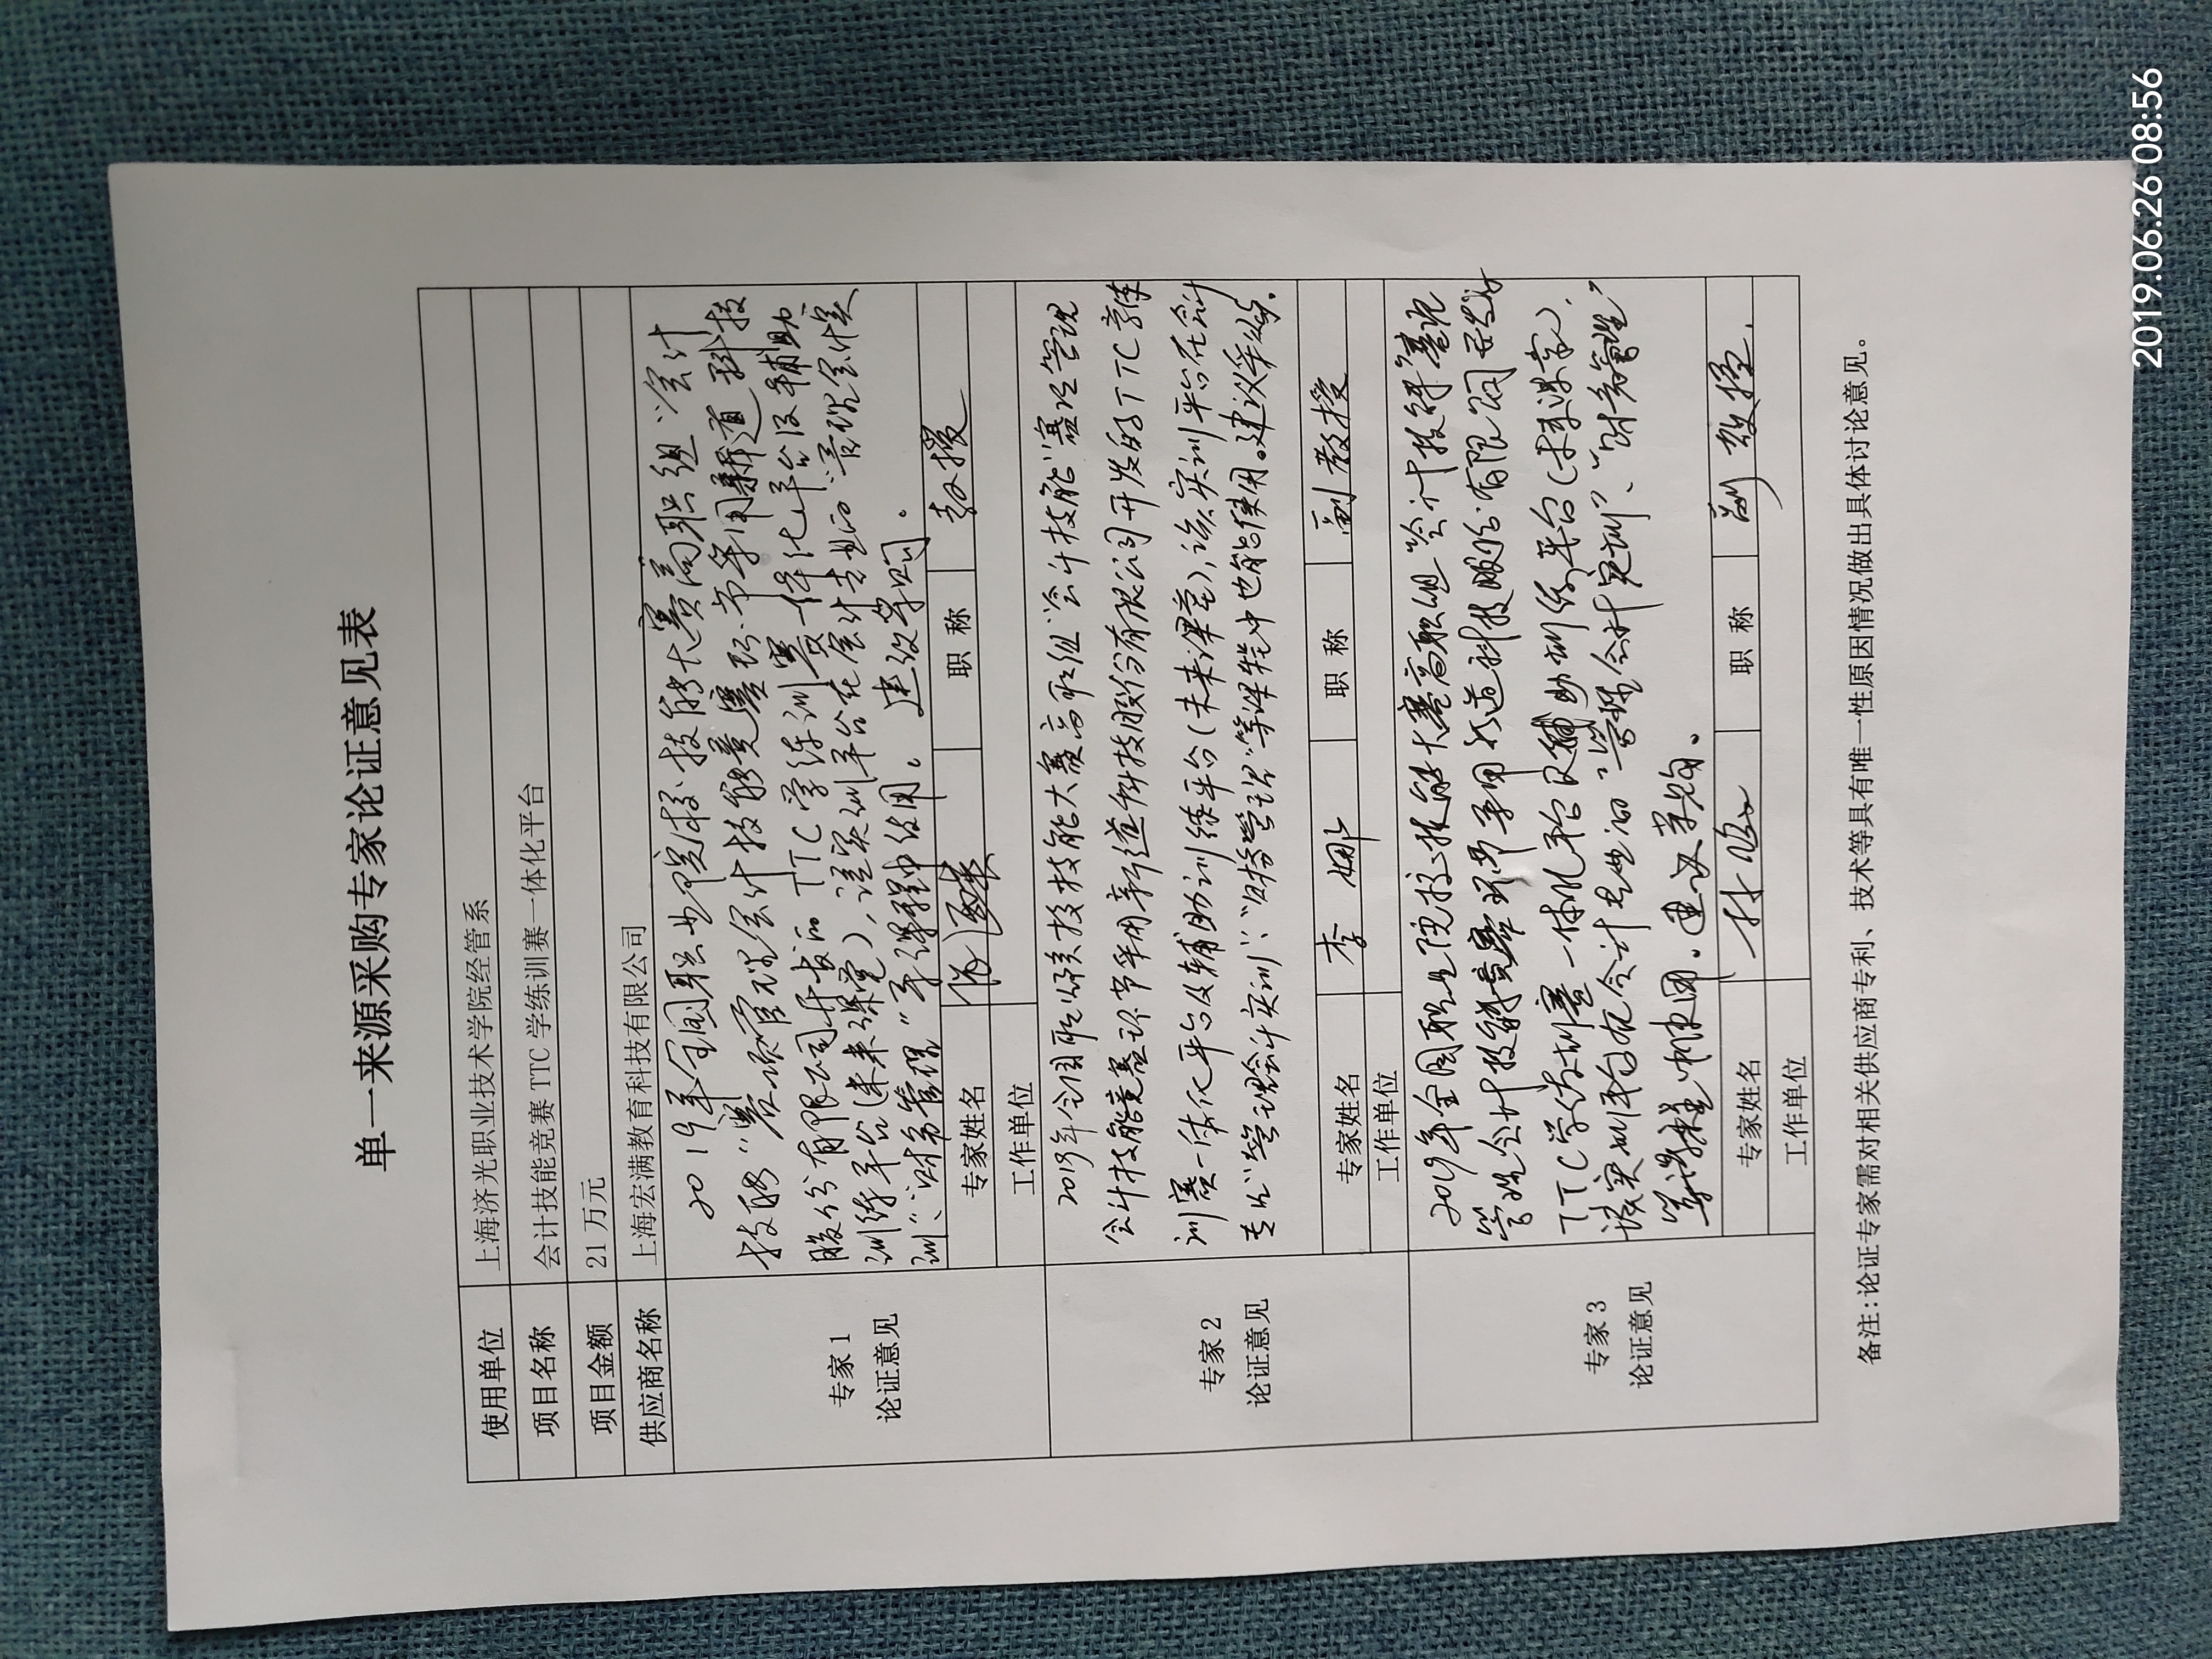 单一来源采购专家论证意见表
使用单位 上海济光职业技术学院经管系
项目名称 会计技能竞赛 TTC 学练训赛一体化平台
项目金额 21 万元
供应商名称 上海宏满教育科技有限公司
专家 1
论证意见
2019年全国职业院校技能大赛高职组“会计
技能”赛项管理会计技能竞赛环节采用新道科技
股份有限公司开发的TTC学练训赛一体化平台及辅助
训练平台(未来课堂),该实训平台在会计专业的“管理会计实
训”、“财务管理”等课程中使用。建议采购。
专家姓名 职 称 教授
工作单位
专家 2
论证意见
2019年全国职业院校技能大赛高职组“会计技能”赛项管理
会计技能竞赛环节采用新道科技股份有限公司开发的TTC学练
训赛一体化平台及辅助训练平台(未来课堂),该实训平台在会计
专业“管理会计实训”、“财务管理”等课程中也能使用。建议采购。
专家姓名 李娜 职 称 副教授
工作单位
专家 3
论证意见
2019年全国职业院校技能大赛高职组“会计技能”赛项
管理会计技能竞赛环节采用新道科技股份有限公司开发的
TTC学练训赛一体化平台及辅助训练平台(未来课堂),
该实训平台在会计专业的“管理会计实训”、“财务管理”
等课程中使用。建议采购。
专家姓名 林 职 称 副教授.
工作单位
备注:论证专家需对相关供应商专利、技术等具有唯一性原因情况做出具体讨论意见。
2019.06.26 08:56